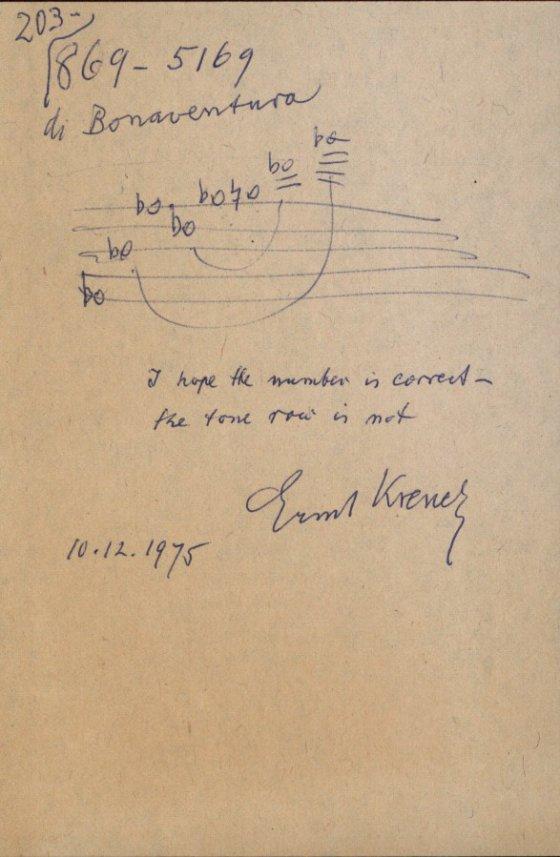 203-
869-5169
di Bonaventura
I hope the number is correct –
the tone row is not
Ernst Krenek
10.12.1975